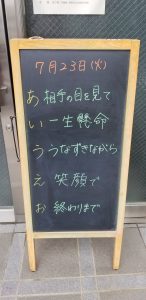 7月23日(火)
あ 相手の目を見て
い 一生懸命
う うなずきながら
え 笑顔で
お 終わりまで